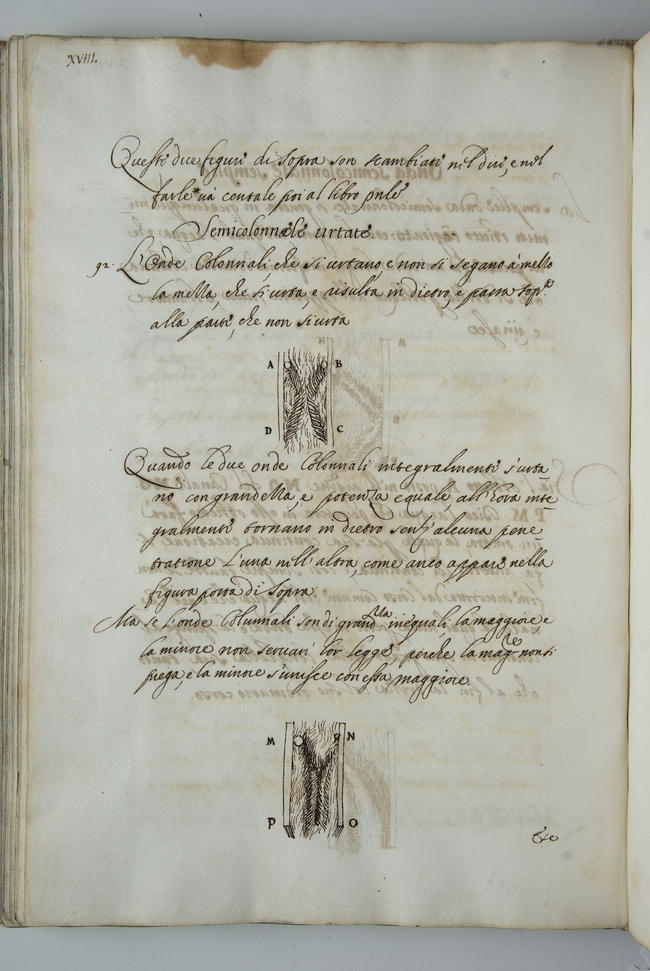 XVIII.
Questi due figure di sopra son scambiati nel dui, e nel
farle va cercale poi al libro pnle
Semicolonnale urtate.
92. L'Onde Colonnali, che si urtano, e non si segano à mello
la mella, che si urta, e risulta in dietro, e passa sop.ra
alla parte, che non si urta
A B
D C
Quando le due onde Colonnali integralmente s'urta
no con grandella, e potenza equale, all'hora inte
gralmente tornano in dietro senz'alcuna pene
tratione l'una nell'altra, come anco appare nella
figura posta di sopra
Ma se l'onde Colunnali son di grand.lla inequali, la maggiore, e
la minore non servari lor legge, perche la mag.re non si
piega, e la minore s'unisce con essa maggiore
M N
P O